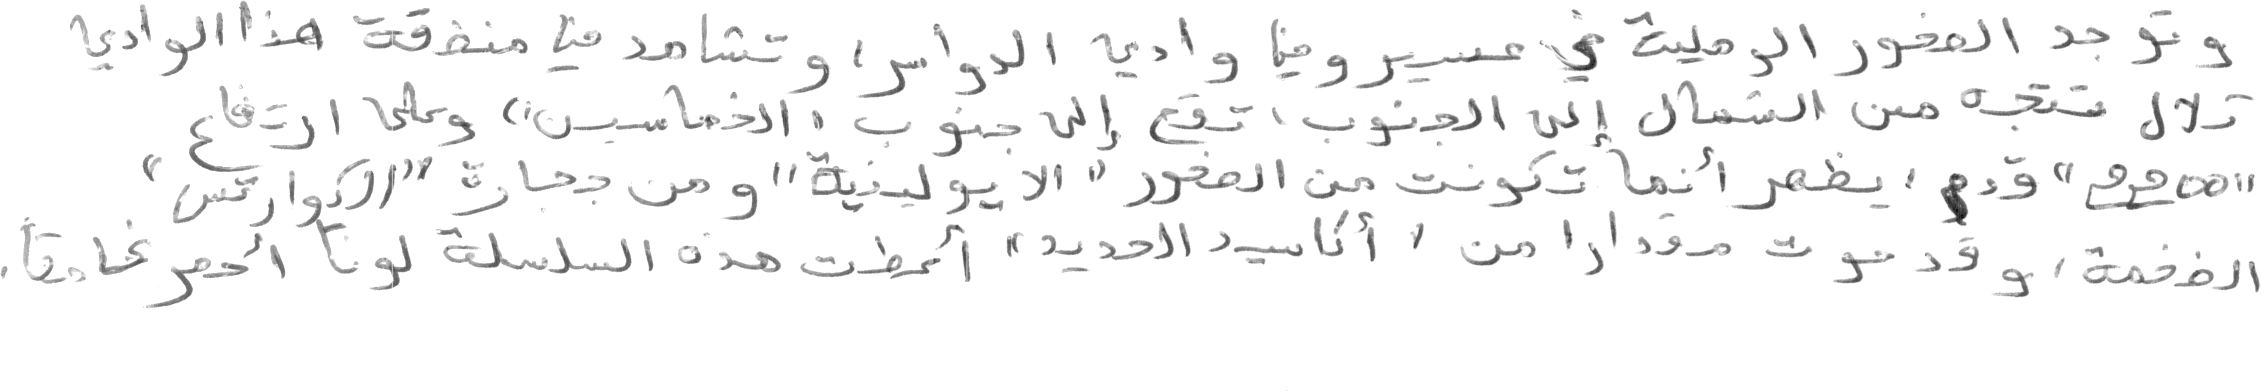 وتوجد الصخور الرملية في عسير وفي وادي الدواسر، وتشاهد في منطقة هذا الوادي
تلال تتجه من الشمال إلى الجنوب، تقع إلى جنوب "الخماسين" وعلى ارتفاع
قدم، يظهر أنها تكونت من الصخور "الايولينية" ومن حجارة "الكوارتس"
الضخمة، وقد حوت مقدارا من "أكاسيد الحديد" أعطت هذه السلسلة لوناً أحمر غامقاً.